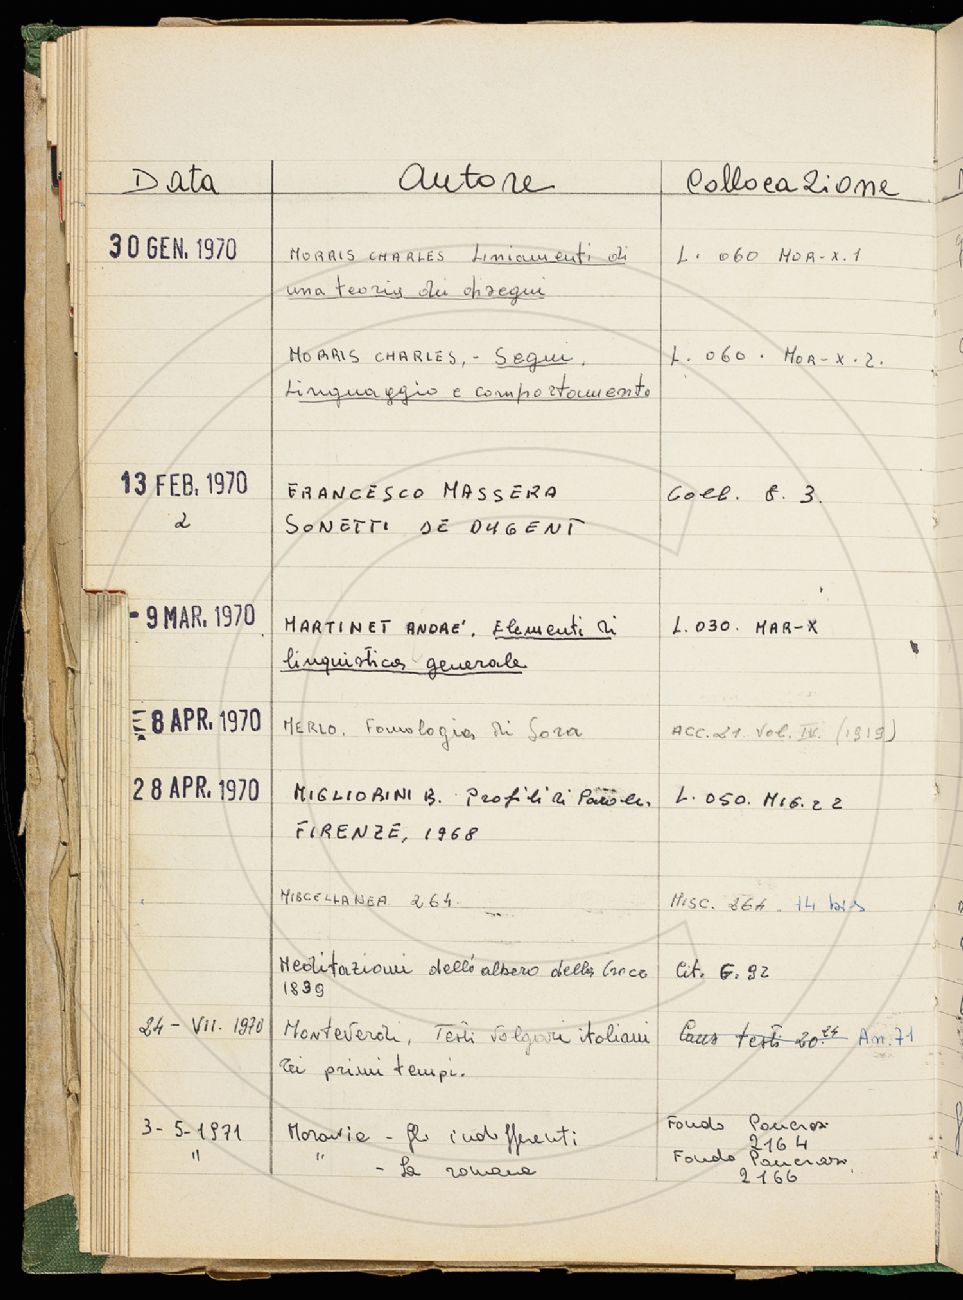 Data Autore Collocazione
30 GEN. 1970 MORRIS CHARLES Liniamenti di L. 060 MOR-X.1
una teoria dei segni
MORRIS CHARLES, - Segni, L. 060. MOR-X.2.
Linguaggio e comportamento
13 FEB. 1970 FRANCESCO MASSERA Coll. 8. 3.
2 SONETTI DE DUGENT
- 9 MAR. 1970 MARTINET ANDRE', Elementi di L. 030. MAR-X
linguistica generale
8 APR. 1970 MERLO. Fonologia di Sora ACC. 21 Vol. IV. (1919)
28 APR. 1970 MIGLIORINI B. Profili di Parole, L. 050. MIG. 22
FIRENZE, 1968
MISCELLANEA 264. MISC. 264. 14 bis
Meditazioni dell'albero della Croce Cit. G. 92
1839
24 - VII. 1970 Monteverdi, Testi volgari italiani testi 20.24 An. 71
dei primi tempi.
3-5-1971 Moravia - Gli indifferenti Fondo Pancrazi
2164
" " - La romana Fondo Pancrazi,
2166